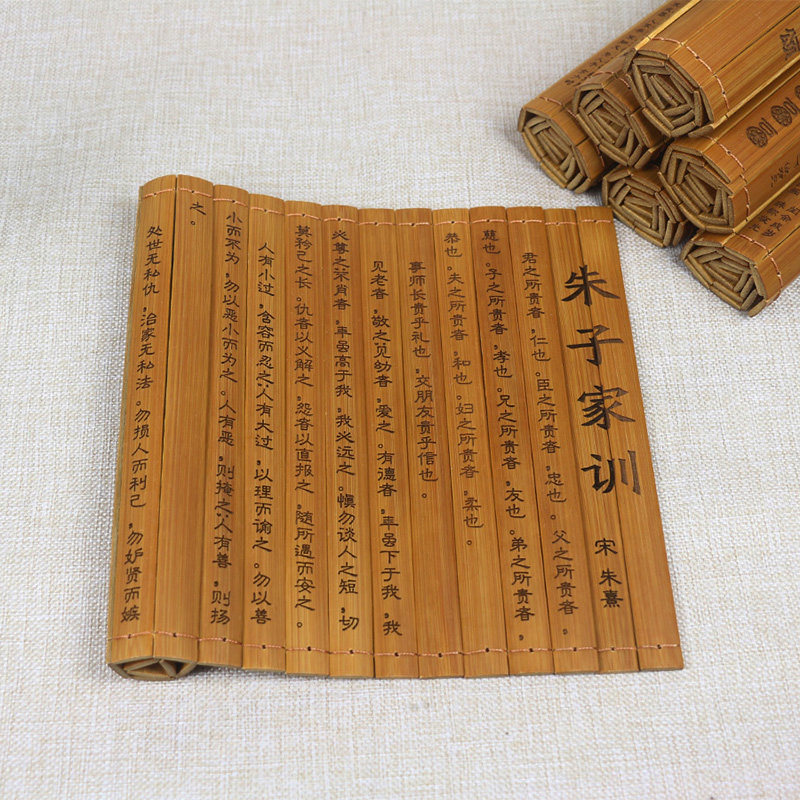 朱子家训 宋 朱熹
君之所贵者，仁也。臣之所贵者，忠也。父之所贵者，
慈也。子之所贵者，孝也。兄之所贵者，友也。弟之所贵者，
恭也。夫之所贵者，和也。妇之所贵者，柔也。
事师长贵乎礼也，交朋友贵乎信也。
见老者，敬之；见幼者，爱之。有德者，年虽下于我，我
必尊之；不肖者，年虽高于我，我必远之。慎勿谈人之短，切
莫矜己之长。仇者以义解之，怨者以直报之，随所遇而安之。
人有小过，含容而忍之；人有大过，以理而谕之。勿以善
小而不为，勿以恶小而为之。人有恶，则掩之；人有善，则扬
之。
处世无私仇，治家无私法。勿损人而利己，勿妒贤而嫉